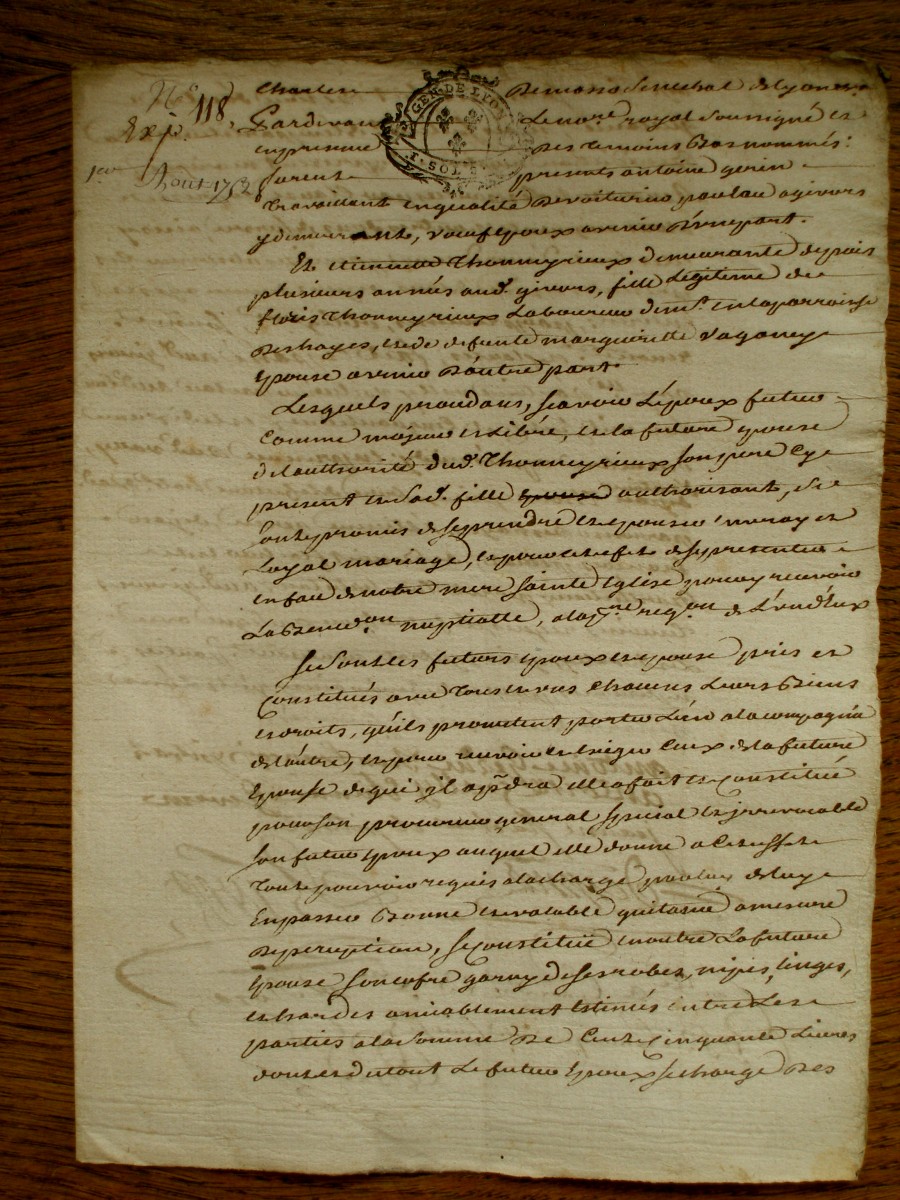 N° 118
Exp.
1er Aout 1752
GEN DE LYON
I. SOL
Charles Demasso Senechal de Lyon
Pardevant Le no.re royal soussigné et
en presence des temoins bas nommés:
furent presents antoine gerin
travaillant en qualité de voiturier par eau a givors
y demeurante, veuf Epoux avenir d'une part.
Et etiennette Thonneyrieux demeurante depuis
plusieurs années aud. givors, fille Legitime de
floris Thonneyrieux Laboureur dem.t en la parroisse
des hayes, et de defunte marguerite Vaganey
Epouse avenir d'autre part.
Lesquels procedans, sçavoir L'époux futur
Comme majeur et Libre, et la future épouse
de L'authorité dud. Thonneyrieux son pere Cy
present et sad. fille authorisant, se
sont promis de se prendre et epouser en vray et
Loyal mariage, et pour cet effet de se presenter
en face de notre mere sainte Eglise pour y recevoir
La Bened.on nuptialle, a la p.re req.on de L'un d'eux
Se sont les futurs epoux et epouse pris et
Constitués avec tous et uns chacuns Leurs Biens
et droits, qu'ils promettent porter L'un a la compagnie
de L'autre, et pour recevoir et exiger Ceux de la future
Epouse de qui il apdra elle a fait et Constitué
pour son procureur general special et irrevocable
son futur epoux auquel elle donne a Cet effet
tout pouvoir requis a la charge par lui de
En passer Bonne et valable quitance a mesure
de perception, se Constitue en outre La future
epouse son cofre garny de ses robes, nipes, Linges,
et hardes amiablement Estimés entre Les
parties a la somme de Cent Cinquante Livres
dont et du tout Le futur Epoux se charge des